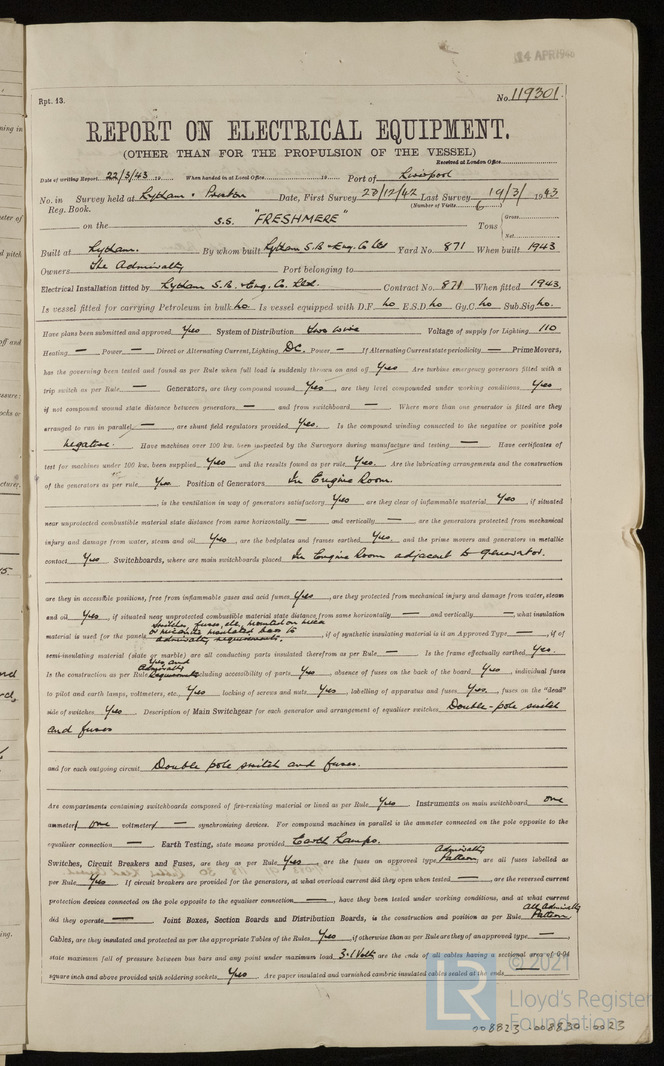 14 APR 1946
Rpt. 13.
No. 119301
REPORT ON ELECTRICAL EQUIPMENT.
(OTHER THAN FOR THE PROPULSION OF THE VESSEL)
Received at London Office
Date of writing Report 22/3/43 19 When handed in at Local Office 19 Port of Liverpool
No. in Reg. Book. Survey held at Lytham & Preston Date, First Survey 23/12/42 Last Survey 19/3/1943
(Number of Visits 6)
on the S.S. "FRESHMERE" Tons { Gross Net
Built at Lytham. By whom built Lytham S.B. & Eng. Co Ltd Yard No. 871 When built 1943
Owners The Admiralty Port belonging to
Electrical Installation fitted by Lytham S.B. & Eng. Co. Ltd. Contract No. 871 When fitted 1943.
Is vessel fitted for carrying Petroleum in bulk no. Is vessel equipped with D.F. no E.S.D. no Gy.C. no Sub.Sig no.
Have plans been submitted and approved Yes System of Distribution Two wire Voltage of supply for Lighting 110
Heating — Power — Direct or Alternating Current, Lighting DC. Power — If Alternating Current state periodicity — Prime Movers,
has the governing been tested and found as per Rule when full load is suddenly thrown on and off Yes Are turbine emergency governors fitted with a
trip switch as per Rule — Generators, are they compound wound Yes, are they level compounded under working conditions Yes,
if not compound wound state distance between generators — and from switchboard — Where more than one generator is fitted are they
arranged to run in parallel —, are shunt field regulators provided Yes. Is the compound winding connected to the negative or positive pole
negative. Have machines over 100 kw. been inspected by the Surveyors during manufacture and testing — Have certificates of
test for machines under 100 kw. been supplied Yes and the results found as per rule Yes. Are the lubricating arrangements and the construction
of the generators as per rule Yes Position of Generators In Engine Room.
, is the ventilation in way of generators satisfactory Yes are they clear of inflammable material Yes, if situated
near unprotected combustible material state distance from same horizontally — and vertically —, are the generators protected from mechanical
injury and damage from water, steam and oil Yes, are the bedplates and frames earthed Yes and the prime movers and generators in metallic
contact Yes Switchboards, where are main switchboards placed In Engine Room adjacent to generator.
are they in accessible positions, free from inflammable gases and acid fumes Yes, are they protected from mechanical injury and damage from water, steam
and oil Yes, if situated near unprotected combustible material state distance from same horizontally — and vertically —, what insulation
material is used for the panels Switches, fuses, etc, mounted on mica or micanite insulated bars to Admiralty requirements, if of synthetic insulating material is it an Approved Type —, if of
semi-insulating material (slate or marble) are all conducting parts insulated therefrom as per Rule — Is the frame effectually earthed Yes.
Is the construction as per Rule Yes and Admiralty Requirements including accessibility of parts Yes, absence of fuses on the back of the board Yes, individual fuses
to pilot and earth lamps, voltmeters, etc. Yes locking of screws and nuts Yes, labelling of apparatus and fuses Yes, fuses on the "dead"
side of switches Yes. Description of Main Switchgear for each generator and arrangement of equaliser switches Double-pole switch
and fuses
and for each outgoing circuit Double pole switch and fuses.
Are compartments containing switchboards composed of fire-resisting material or lined as per Rule Yes Instruments on main switchboard one
ammeters one voltmeters — synchronising devices. For compound machines in parallel is the ammeter connected on the pole opposite to the
equaliser connection — Earth Testing, state means provided Earth Lamps.
Switches, Circuit Breakers and Fuses, are they as per Rule Yes, are the fuses an approved type Admiralty Pattern, are all fuses labelled as
per Rule Yes If circuit breakers are provided for the generators, at what overload current did they open when tested —, are the reversed current
protection devices connected on the pole opposite to the equaliser connection —, have they been tested under working conditions, and at what current
did they operate — Joint Boxes, Section Boards and Distribution Boards, is the construction and position as per Rule All Admiralty Pattern
Cables, are they insulated and protected as per the appropriate Tables of the Rules Yes, if otherwise than as per Rule are they of an approved type —
state maximum fall of pressure between bus bars and any point under maximum load 3.1 Volts are the ends of all cables having a sectional area of 0.04
square inch and above provided with soldering sockets Yes Are paper insulated and varnished cambric insulated cables sealed at the ends
© 2021
LR
Lloyd's Register
Foundation
008823-008830-0023